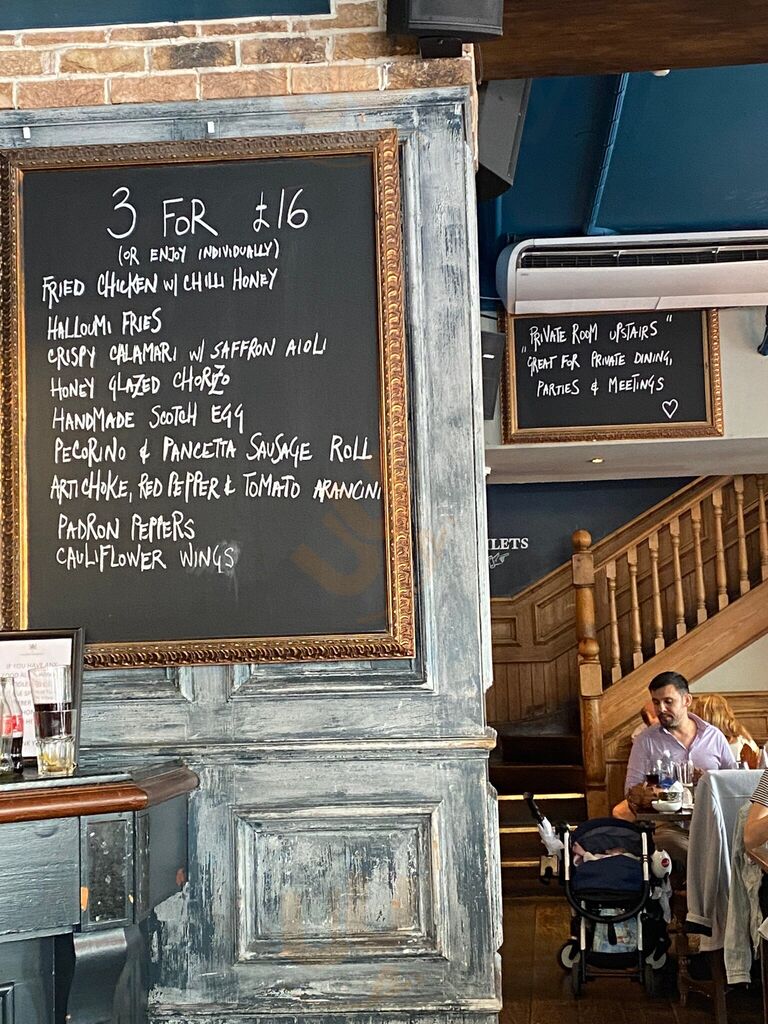 3 FOR £16
(OR ENJOY INDIVIDUALLY)
FRIED CHICKEN W/ CHILLI HONEY
HALLOUMI FRIES
CRISPY CALAMARI W/ SAFFRON AIOLI
HONEY GLAZED CHORIZO
HANDMADE SCOTCH EGG
PECORINO & PANCETTA SAUSAGE ROLL
ARTICHOKE, RED PEPPER & TOMATO ARANCINI
PADRON PEPPERS
CAULIFLOWER WINGS
"PRIVATE ROOM UPSTAIRS"
GREAT FOR PRIVATE DINING,
PARTIES & MEETINGS
ILETS
IF YOU HAVE ANY